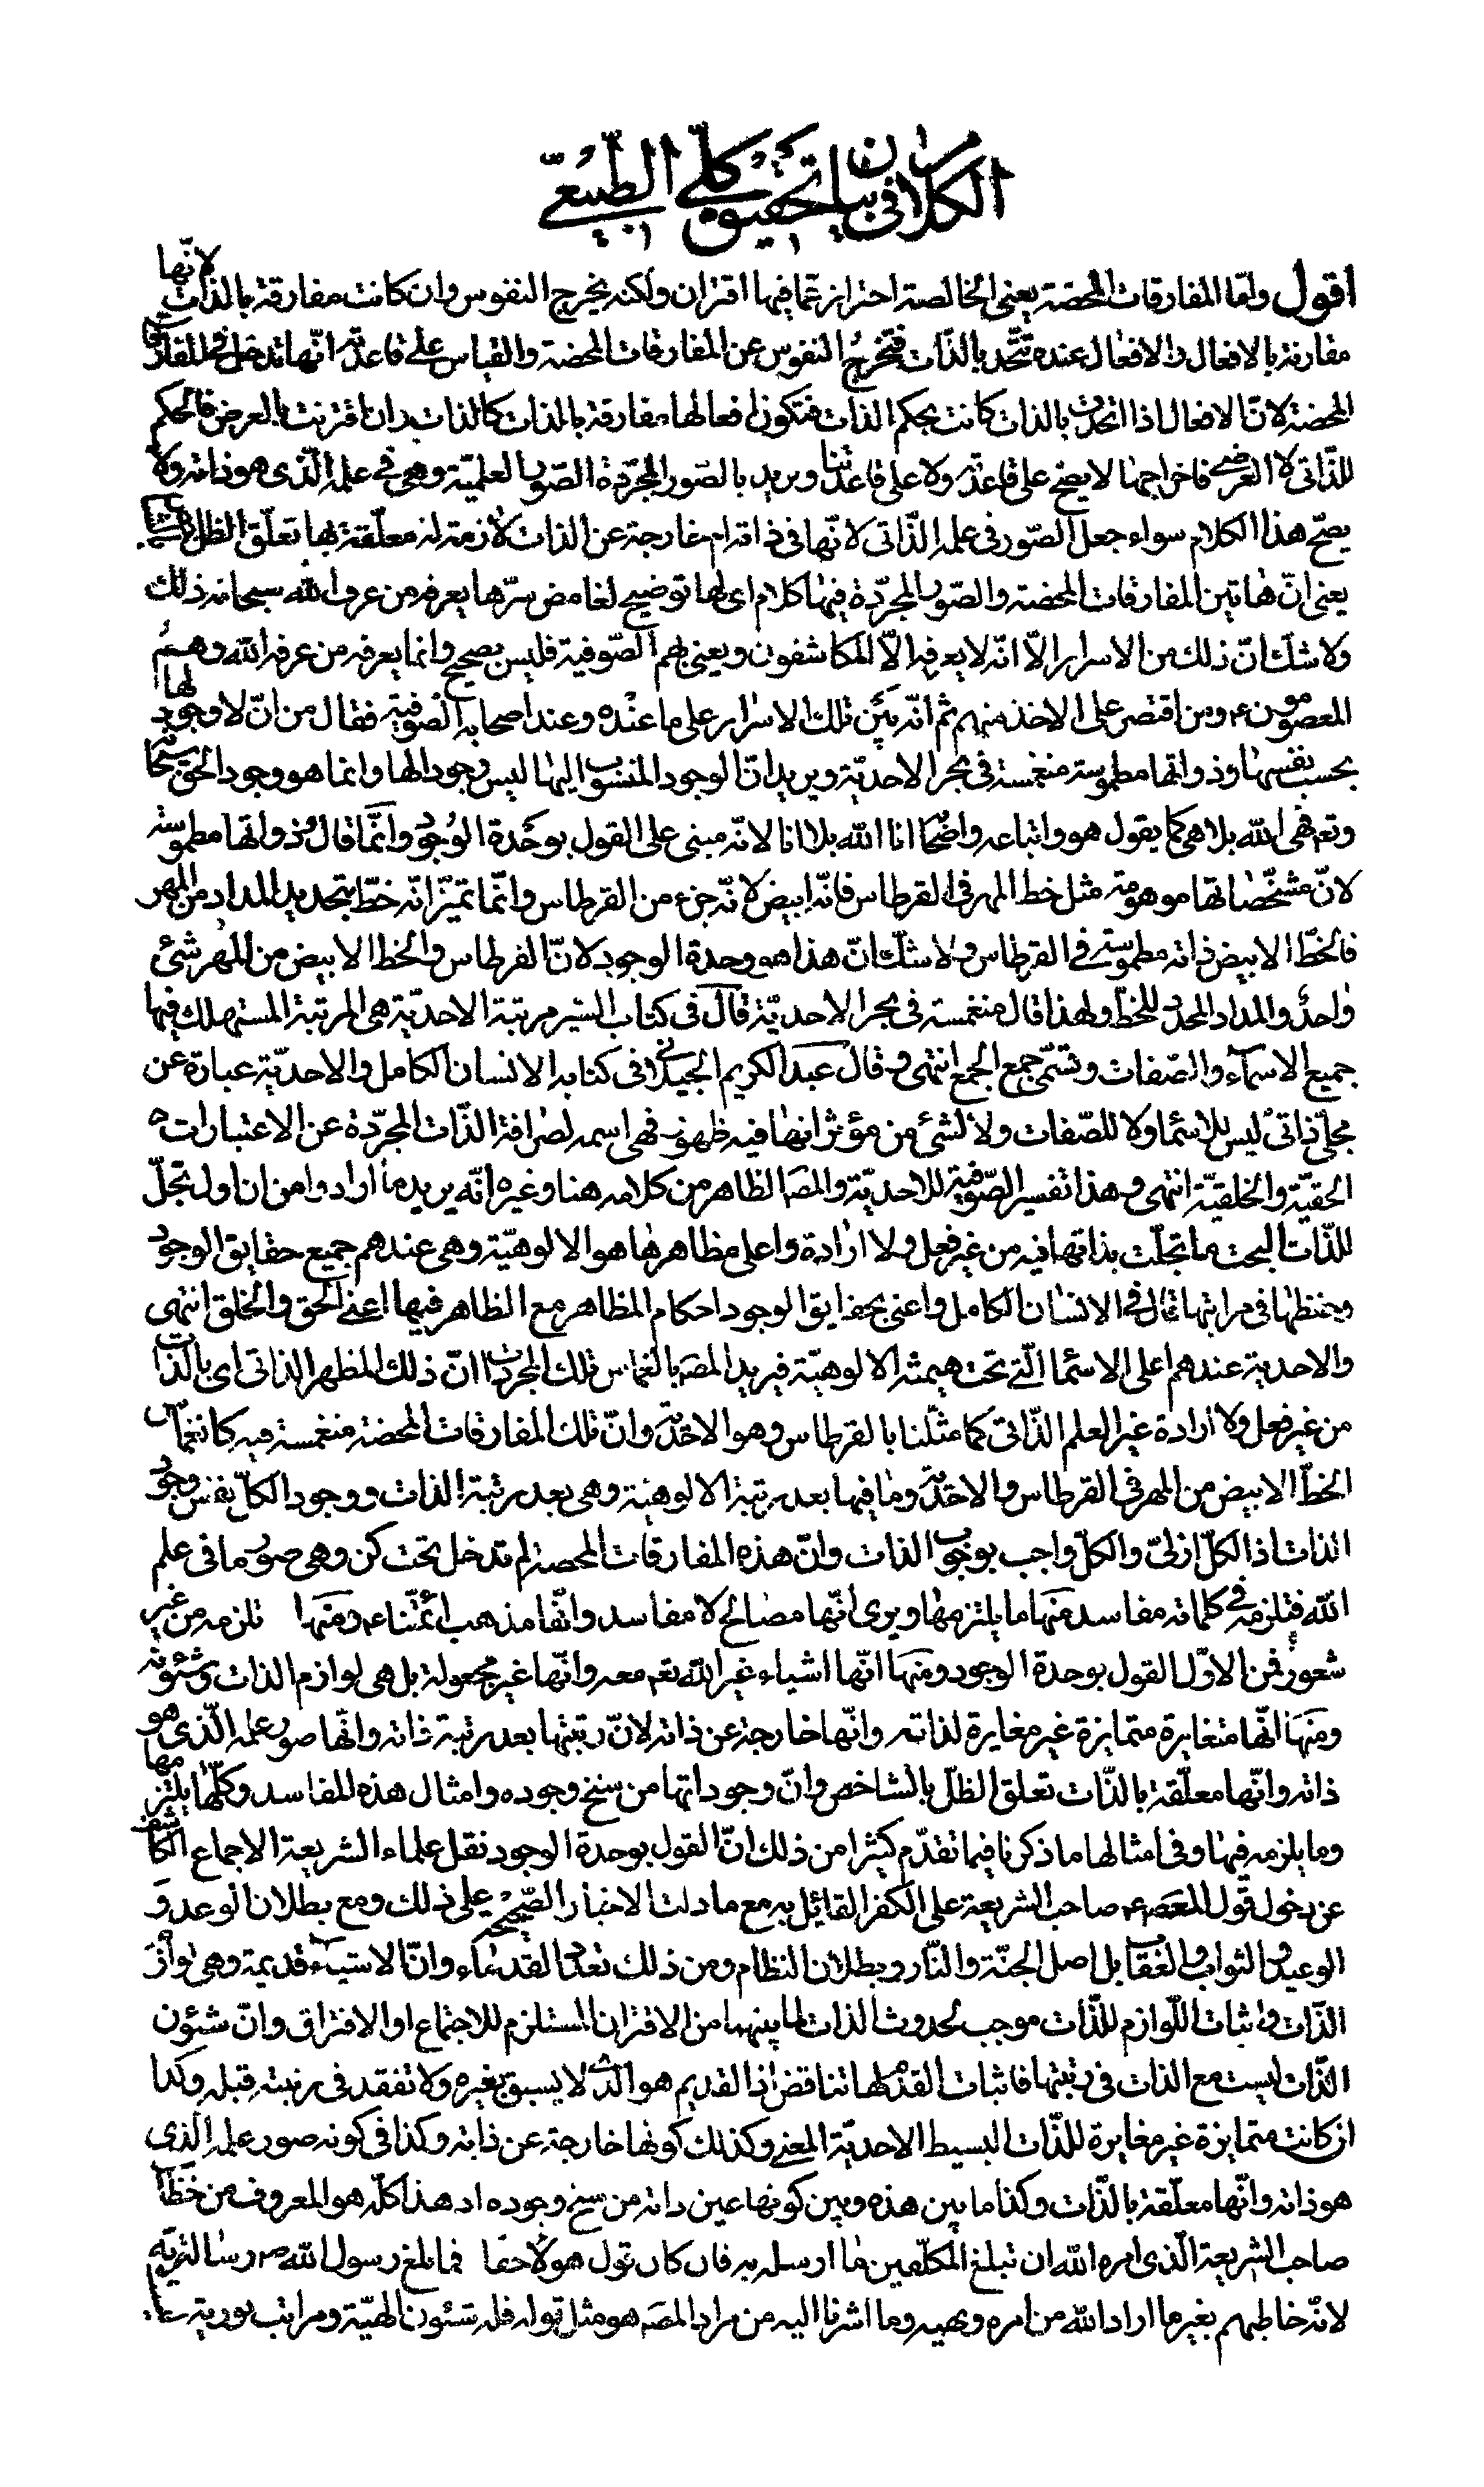 الكلام في بيان تحقيق كلي الطبيعي
اقول وامّا المفارقات المحضة يعني الخالصة احتراز عمّا فيها اقتران ولكنه يخرج النفوس وان كانت مفارقة بالذات لانّها
مقارنة بالافعال والافعال عنده تتّحد بالذّات فتخرج النفوس عن المفارقات المحضة والقياس على قاعدته انّها تدخل في المفارقات
المحضة لانّ الافعال اذا اتحدت بالذات كانت بحكم الذات فتكون افعالها مفارقة بالذات كالذات وان اقترنت بالعرض فالحكم
للذّاتي لا العرضي فاخراجها لا يصح على قاعدته ولا على قاعدتنا ويريد بالصّور المجرّدة الصّور العلميّة وهي في علمه الّذي هو ذاته ولا
يصحّ هذا الكلام سواء جعل الصّور في علمه الذّاتي لانّها في ذاته ام خارجة عن الذات لازمة له معلّقة بها تعلّق الظل بالشاخص
يعني انّ هاتين المفارقات المحضة والصّور المجرّدة فيها كلام اي لها توضيح لغامض سرّها يعرفه من عرف الله سبحانه ذلك
ولا شك انّ ذلك من الاسرار الّا انّه لا يعرفه الّا المكاشفون ويعني بهم الصّوفية فليس بصحيح وانما يعرفه من عرفه الله وهم
المعصومون ع ومن اقتصر على الاخذ منهم ثم انّه بيّن تلك الاسرار على ما عنده وعند اصحابه الصّوفية فقال من انّ لا وجود لها
بحسب نفسها وذواتها مطموسة منغمسة في بحر الاحديّة ويريد انّ الوجود المنسوب اليها ليس وجودا لها وانما هو وجود الحق سبحانه
وتعم فهي الله بلا هي كما يقول هو واتباعه واضحا انا الله بلا انا لانّه مبني على القول بوحدة الوجود وانّما قال وذواتها مطموسة
لانّ مشخّصاتها موهومة مثل خط المهر في القرطاس فانّه ابيض لانّه جزء من القرطاس وانّما تميّز انّه خطّ بتحديد المداد من المهر
فالخطّ الابيض ذاته مطموسة في القرطاس ولا شك انّ هذا هو وحدة الوجود لانّ القرطاس والخط الابيض من المهر شئ
واحد والمداد المحدد للخطّ ولهذا قال منغمسة في بحر الاحديّة قال في كتاب السّير مرتبة الاحديّة هي المرتبة المستهلك فيها
جميع الاسماء والصّفات وتسمّى جمع الجمع انتهى وقال عبد الكريم الجيلاني في كتابه الانسان الكامل والاحديّة عبارة عن
مجلى ذاتي ليس للاسماء ولا للصّفات ولا لشئ من مؤثراتها فيه ظهور فهي اسم لصرافة الذّات المجرّدة عن الاعتبارات
الحقيّة والخلقيّة انتهى وهذا تفسير الصّوفية للاحديّة والمص الظاهر من كلامه هنا وغيره انّه يريد ما ارادوا من ان اول تجلّ
للذّات البحت ما تجلّت بذاتها فيه من غير فعل ولا ارادة واعلى مظاهرها هو الالوهيّة وهي عندهم جميع حقايق الوجود
وحفظها في مراتبها قال في الانسان الكامل واعني بحقايق الوجود احكام المظاهر مع الظاهر فيها اعني الحق والخلق انتهى
والاحدية عندهم اعلى الاسماء الّتي تحت هيمنة الالوهيّة فيريد المص بانغماس تلك المجردات انّ ذلك المظهر الذاتي اي بالذات
من غير فعل ولا ارادة غير العلم الذّاتي كما مثّلنا بالقرطاس وهو الاحديّة وانّ تلك المفارقات المحضة منغمسة فيه كانغماس
الخطّ الابيض من المهر في القرطاس والاحديّة وما فيها بعد رتبة الالوهيّة وهي بعد رتبة الذات ووجود الكلّ بنفس وجود
الذات اذ الكلّ ازليّ والكلّ واجب بوجوب الذات وانّ هذه المفارقات المحضة لم تدخل تحت كن وهي صور ما في علم
الله فتلزمه في كلماته مفاسد منها ما يلتزمها ويرى انّها مصالح لا مفاسد وانّها مذهب ائمّتنا ع ومنها تلزمه من غير
شعور فمن الاوّل القول بوحدة الوجود ومنها انّها اشياء غير الله تعم معه وانّها غير مجعولة بل هي لوازم الذات وشئونه
ومنها انّها متغايرة متمايزة غير مغايرة لذاته وانّها خارجة عن ذاته لانّ رتبتها بعد رتبة ذاته وانّها صور علمه الّذي هو
ذاته وانّها معلّقة بالذّات تعلق الظلّ بالشاخص وانّ وجوداتها من سنخ وجوده وامثال هذه المفاسد وكلّها يلتزمها
وما يلزمه فيها وفي امثالها ما ذكرنا فيما تقدّم كثيرا من ذلك انّ القول بوحدة الوجود نقل علماء الشريعة الاجماع الكاشف
عن دخول قول المعصوم ع صاحب الشريعة على الكفر القائل به مع ما دلت الاخبار الصّحيحة على ذلك ومع بطلان الوعد و
الوعيد والثواب والعقاب بل اصل الجنّة والنّار وبطلان النظام ومن ذلك تعدد القدماء وانّ الاشياء قديمة وهي لوازم
الذّات واثبات اللّوازم للذّات موجب لحدوث الذات لما بينهما من الاقتران المستلزم للاجتماع او الافتراق وانّ شئون
الذّات ليست مع الذات في رتبتها فاثبات القدم لها تناقض اذ القديم هو الذي لا يسبق بغيره ولا تفقد في رتبته قبله وكذا
ان كانت متمايزة غير مغايرة للذّات البسيط الاحديّة المعنى وكذلك كونها خارجة عن ذاته وكذا في كونه صور علمه الذي
هو ذاته وانّها معلّقة بالذّات وكذا ما بين هذه وبين كونها عين ذاته من سنخ وجوده اذ هذا كلّه هو المعروف من خطاب
صاحب الشريعة الّذي امره الله ان تبلغ المكلّفين ما ارسله به فان كان قول هولاء حقا فما بلغ رسول الله ص رسالة ربّه
لانّه خاطبهم بغير ما اراد الله من امره ونهيه وما اشرنا اليه من مراد المص هو مثل قوله فله شئون الهيّة ومراتب نورية